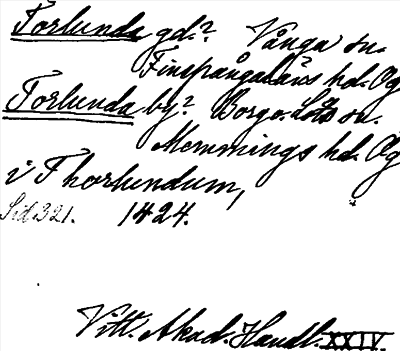 Torlunda gd.? Vånga sn.
Finspångaläns hd. Ög
Torlunda by? Borgs-Lösn.
Memmings hd. Ög
i Thorlundum,
Sid 321. 1424.
Vitt. Akad. Handl. XXIV.